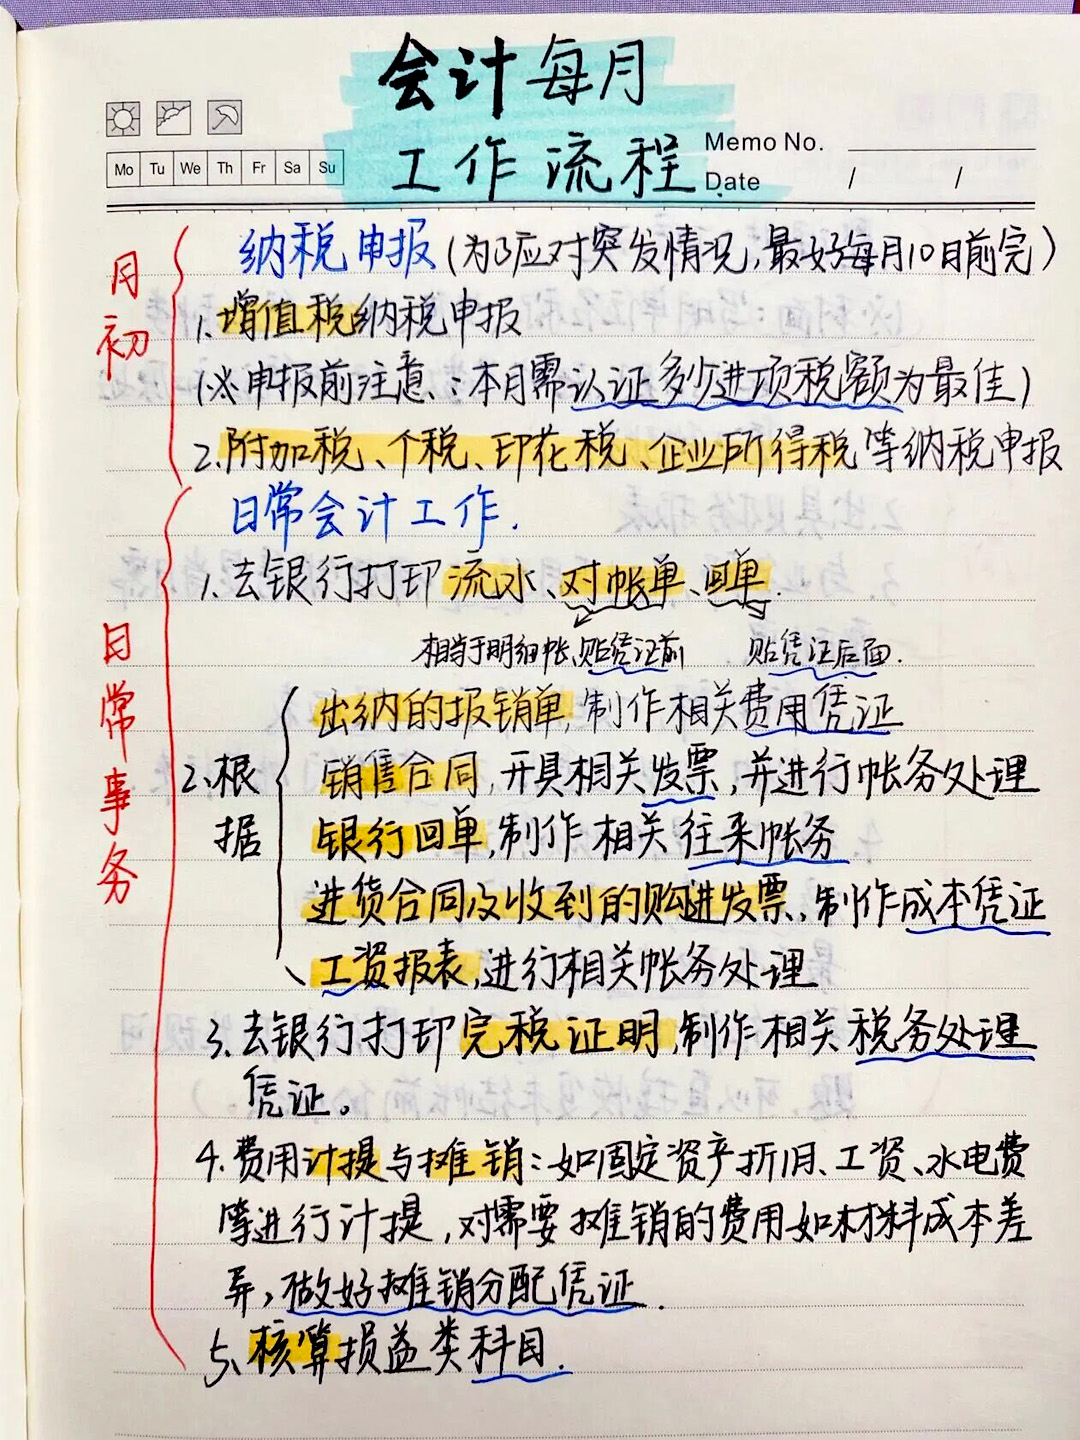 会计每月
工作流程
Memo No.
Date / /
Mo Tu We Th Fr Sa Su
月初
纳税申报(为了应对突发情况,最好每月10日前完)
1.增值税纳税申报
(※申报前注意:本月需认证多少进项税额为最佳)
2.附加税、个税、印花税、企业所得税等纳税申报
日常事务
日常会计工作.
1.去银行打印流水、对帐单、回单.
相当于明细帐,贴凭证前 贴凭证后面.
2.根据
出纳的报销单,制作相关费用凭证
销售合同,开具相关发票,并进行帐务处理
银行回单,制作相关往来帐务
进货合同及收到的购进发票,制作成本凭证
工资报表,进行相关帐务处理
3.去银行打印完税证明,制作相关税务处理
凭证。
4.费用计提与摊销:如固定资产折旧、工资、水电费
等进行计提,对需要摊销的费用如材料成本差
异,做好摊销分配凭证.
5、核算损益类科目.